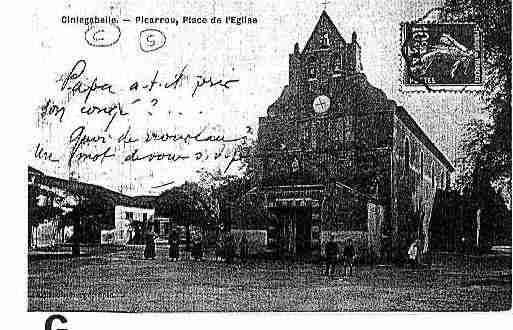 Cintegabelle. — Picarrou, Place de l'Eglise
C S
Papa a-t-il pris
son congé ? ...
Quoi de nouveau ?
Un mot de vous s.v.p.
G